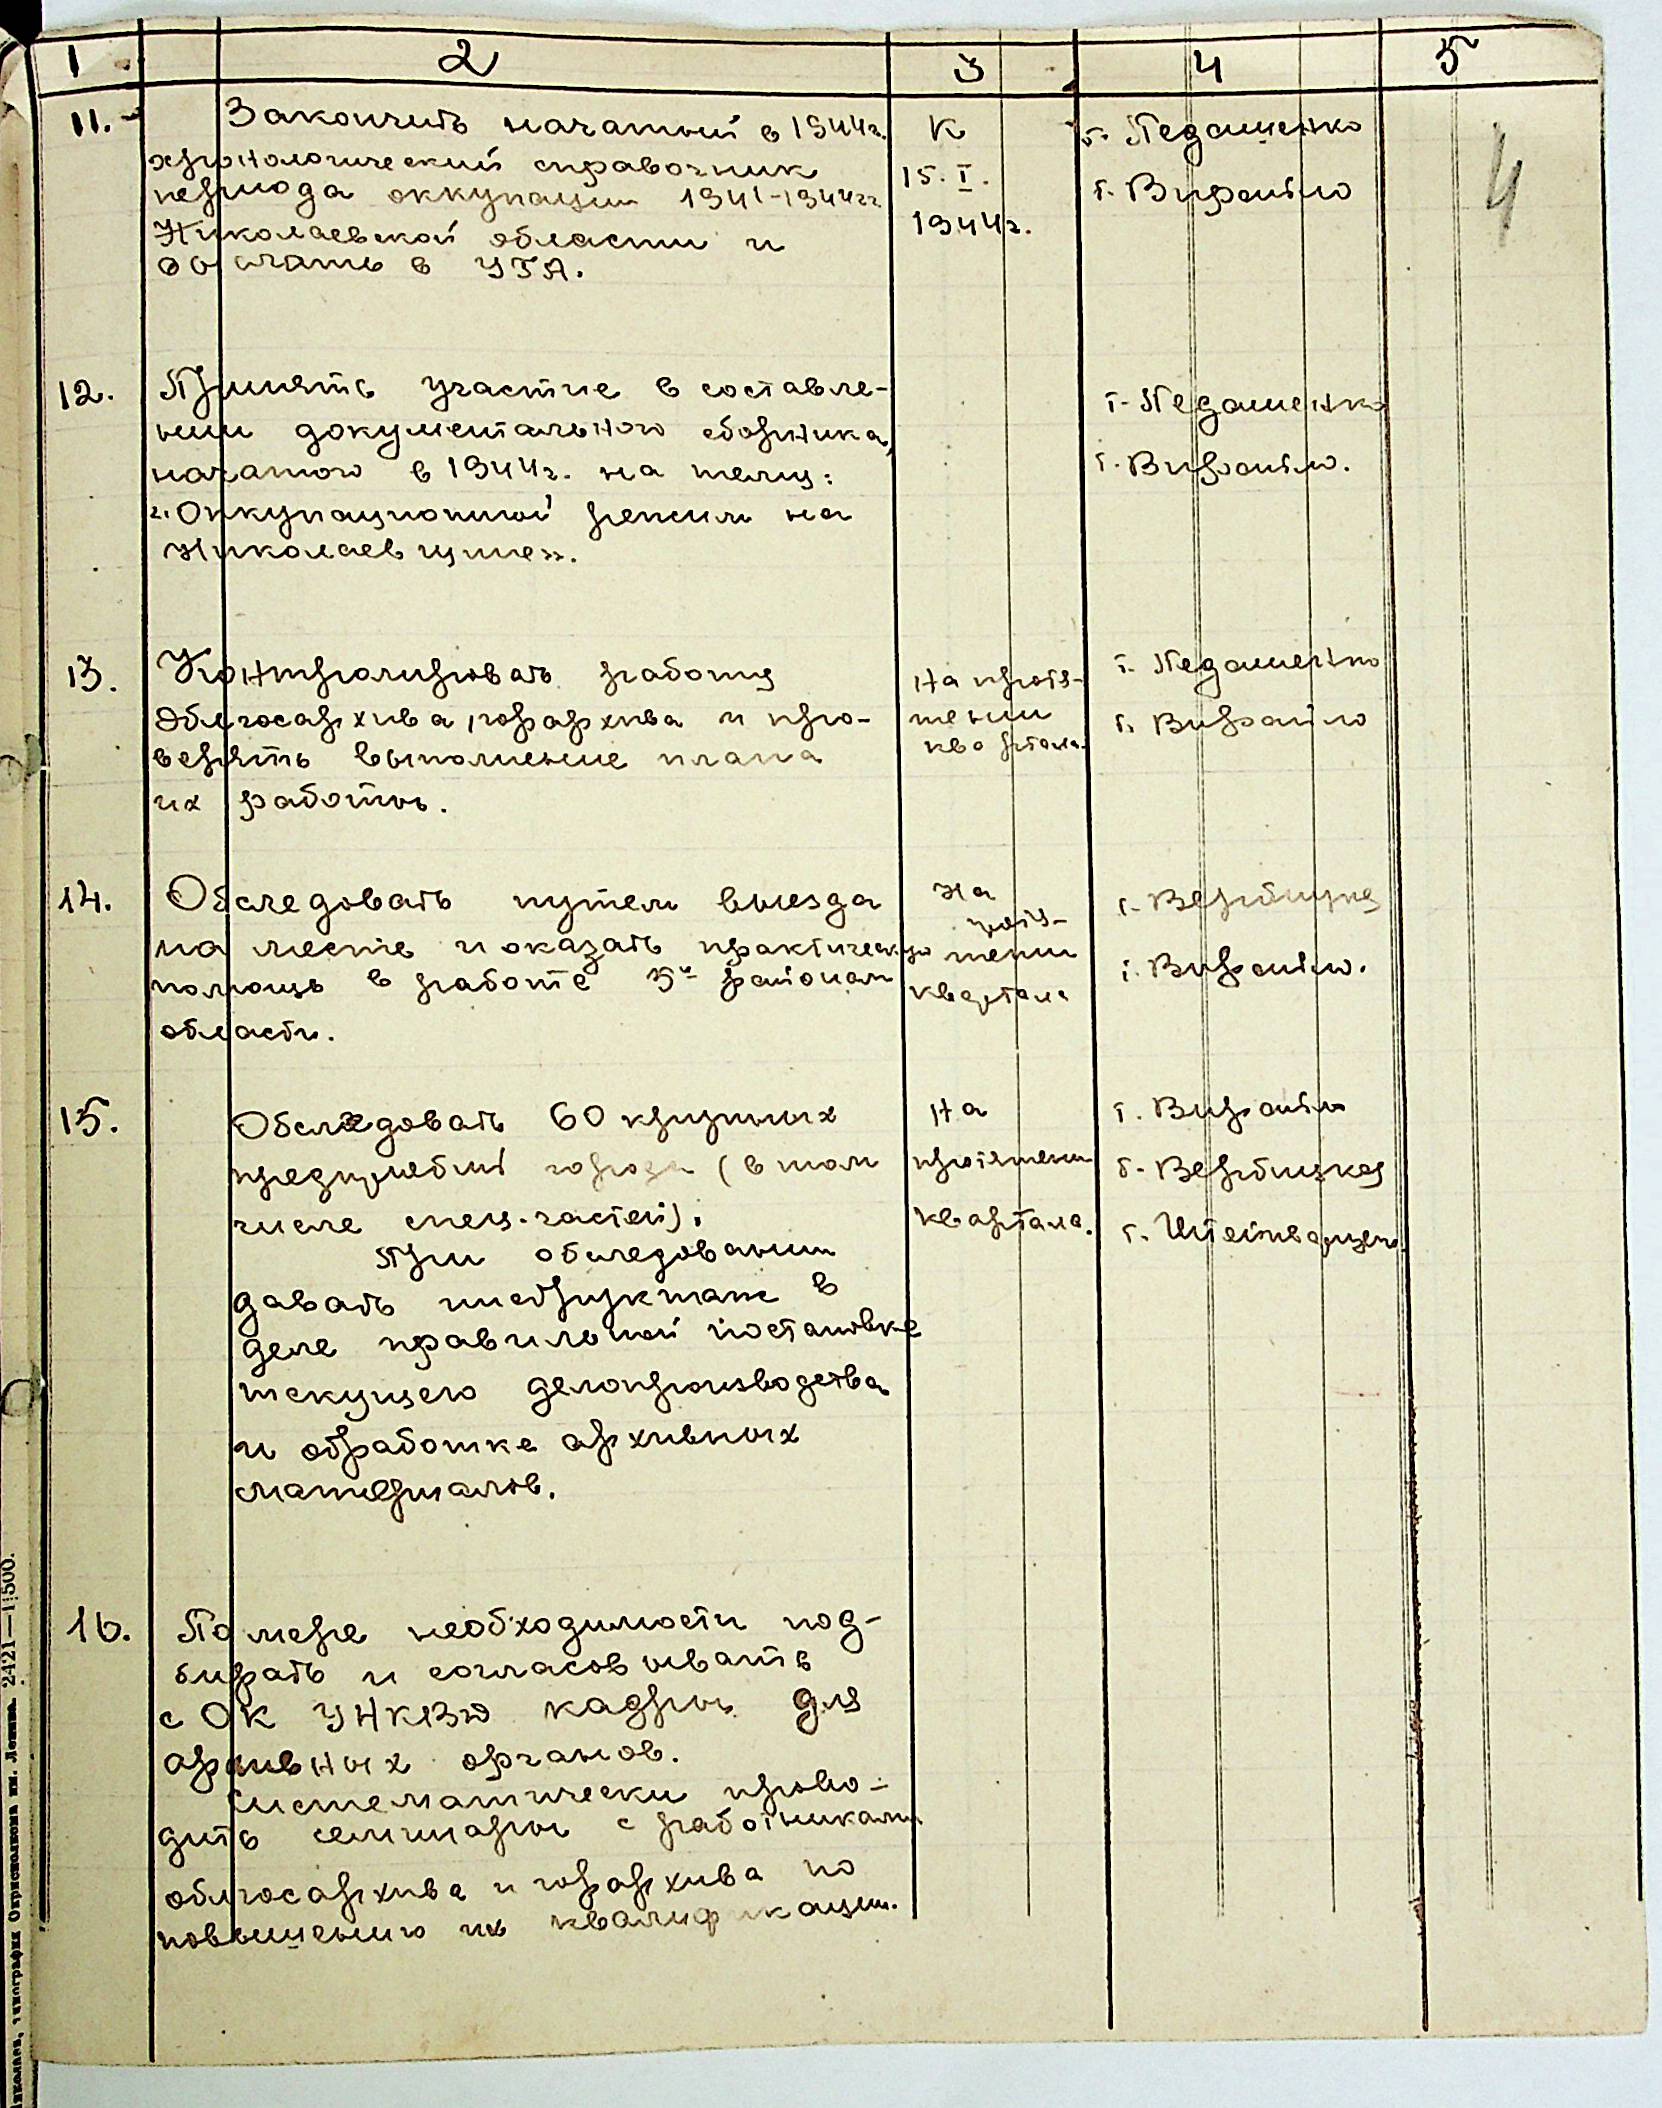 1 2 3 4 5
4
11. Закончить начатый в 1944г. К т. Педашенко
хронологический справочник 15. I. т. Вирайло
периода оккупации 1941-1944гг 1944г.
Николаевской области и
дослать в УГА.
12. Принять участие в составле- т. Педашенко
нии документального сборника, т. Вирайло.
начатого в 1944г. на тему:
"Оккупационный режим на
Николаевщине".
13. Контролировать работу На протя- т. Педашенко
Облгосархива, горархива и про- жении т. Вирайло
верять выполнение плана квартала
их работы.
14. Обследовать путем выезда На т. Вербицкая
на место и оказать практическую протя- жении т. Вирайло.
помощь в работе 5и районам квартала
области.
15. Обследовать 60 крупных На т. Вирайло
предприятий города (в том протяжении т. Вербицкая
числе спец. частей). квартала. т.
При обследовании
давать инструктаж в
деле правильной постановке
текущего делопроизводства
и обработке архивных
материалов.
16. По мере необходимости под-
бирать и согласовывать
с ОК УНКВД кадры для
архивных органов.
Систематически прово-
дить семинары с работниками
облгосархива и горархива по
повышению их квалификации.
типография Окрисполкома им. Ленина. 2421—1500.